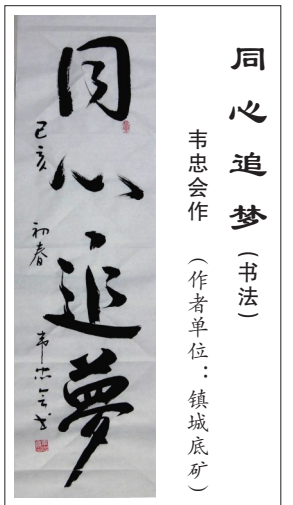 同心追梦（书法）
韦忠会作 （作者单位：镇城底矿）
同心追夢
己亥 初春 韦忠会书